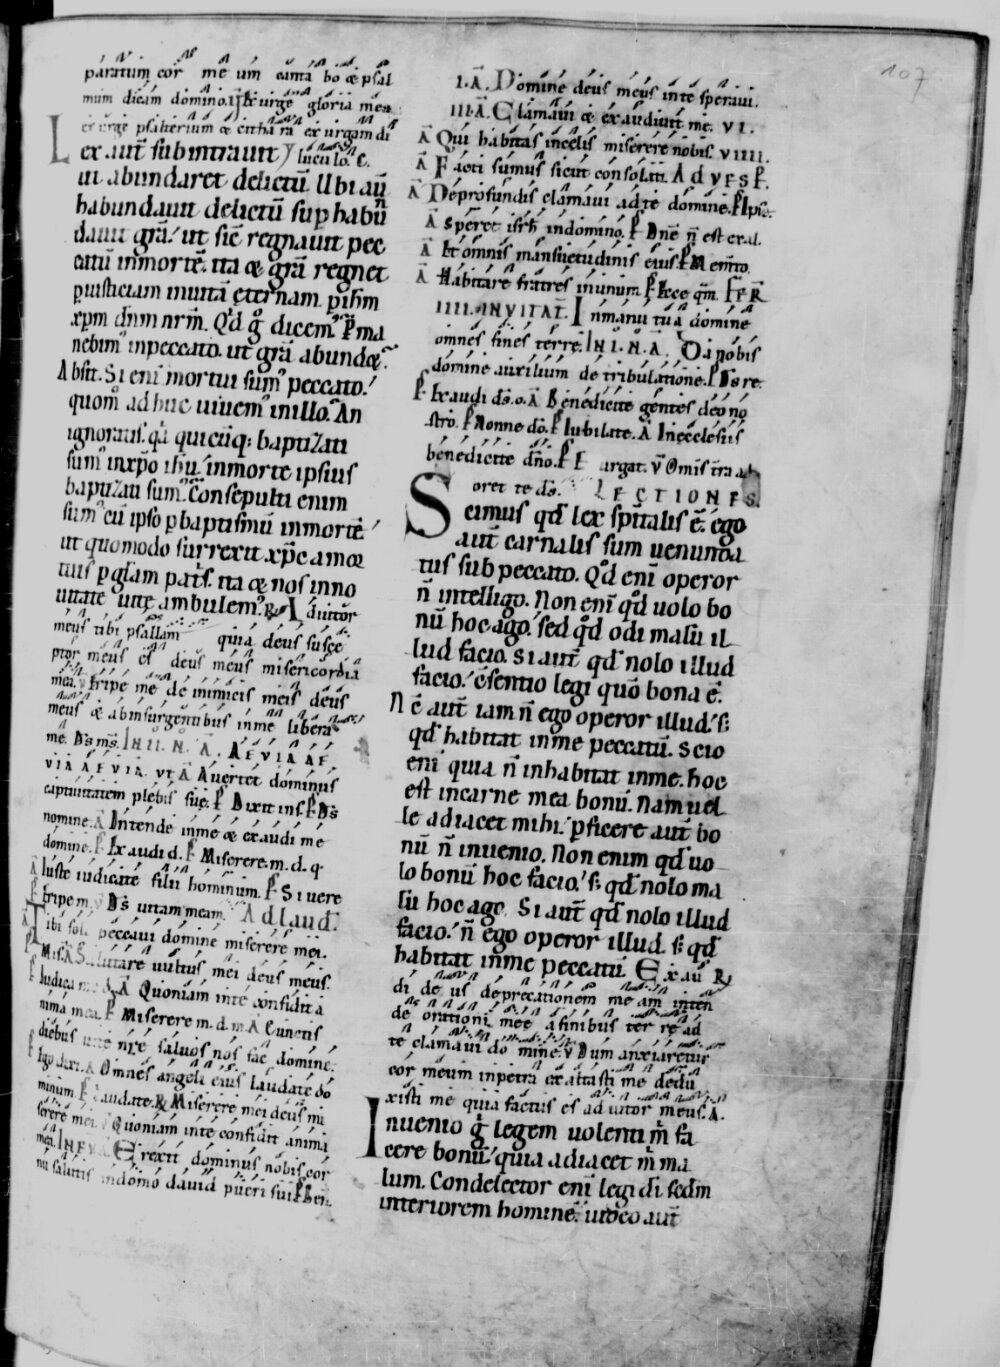 107
páratum cor me um canta bo & psal
mum dicam domino. V Exurge gloria mea
exurge psalterium & cithara exurgam di
Lex aut̄ subintrauit luculo. C.
ut abundaret delictū. Ubi aū
habundauit delictū sup habū
dauit grā. ut sic̄ regnauit pec
catū inmortē. ita & grā regnet
p iusticiam inuitā ęternam. p ihm
xpm dnm nrm. Qd g dicem. Pma
nebim inpeccato. ut grā abund&
Absit. Si eni mortui sum peccato.
quom adhuc uiuem inillo. An
ignoratis. qa quicūq: baptizati
sum inxpo ihu. inmorte ipsius
baptizati sum. Consepulti enim
sum cū ipso p baptismū inmortē
ut quomodo surrexit xpc amor
tuis p glam patis. ita & nos inno
uitate uitę ambulem. R Adiutor
meus tibi psallam quia deus susce
ptor meus es deus meus misericordia
mea. V Eripe me de inimicis meis deus
meus & abinsurgentibus inme libera
me. Ds ms. IN II. N. A. AEVIA AE
VIA AEVIA. VI A Auertet dominus
captiuitatem plebis suę. P Dixit ins. P Ds
nomine. A Intende inme & exaudi me
domine. P Exaudi d. P Miserere. m. d. q
A Iuste iudicate filii hominum. P Si uere
P Eripe m. V Ds uitam meam. Ad laud
A Tibi soli peccaui domine miserere mei.
P Mis. A Salutare uultus mei deus meus.
P Iudica me d. A Quoniam inte confidit a
nima mea. P Miserere m. d. m. A Cunctis
diebus uitę nrē saluos nos fac domine.
P Ego dixi. A Omnes angeli eius laudate do
minum P Laudate. R Miserere mei deus mi
serere mei. V Quoniam inte confidit anima
mea. IN EVA Erexit dominus nobis cor
nu salutis indomo dauid pueri sui. P Ben.
I. A. Domine deus meus inte speraui.
III. A. Clamaui & exaudiuit me. VI.
A Qui habitas incelis miserere nobis. VIIII.
A Facti sumus sicut consolati. AD VESP.
A Deprofundis clamaui adte domine. P Ipse.
A Speret isrh indomino. P Dnē n est exal.
A Et omnis mansuetudinis eius. P Memto.
A Habitare fratres inunum. P Ecce qm. FER
IIII. INVITAT. Inmanu tua domine
omnes fines terrę. IN I. N. A. Da nobis
domine auxilium de tribulatione. P Ds re.
P Exaudi ds. o. A Benedicite gentes deo no
stro. P Nonne do. P Iubilate. A Inecclesiis
benedicite dno. P Exurgat. V Omis tra ad
oret te ds. LECTIONES.
Scimus qd lex spitalis ē. ego
aut carnalis sum uenunda
tus sub peccato. Qd enī operor
n intelligo. Non enī qd uolo bo
nū hoc ago. sed qd odi malū il
lud facio. Si aut qd nolo illud
facio. c̄sentio legi quo bona ē.
Nc aut iam n ego operor illud. s:
qd habitat inme peccatū. Scio
enī quia n inhabitat inme. hoc
est incarne mea bonū. Nam uel
le adiacet mihi. pficere aut bo
nū n inuenio. Non enim qd uo
lo bonū hoc facio. s: qd nolo ma
lū hoc ago. Si aut qd nolo illud
facio. n ego operor illud. s: qd
habitat inme peccatū. Exau R
di de us deprecationem me am inten
de orationi meę afinibus ter rę ad
te clamaui do mine. V Dum anxiaretur
cor meum inpetra exaltasti me dedu
xisti me quia factus es adiutor meus. A.
Inuenio g legem uolenti m fa
cere bonū. quia adiacet m ma
lum. Condelector enī legi di scdm
interiorem hominē. uideo aut